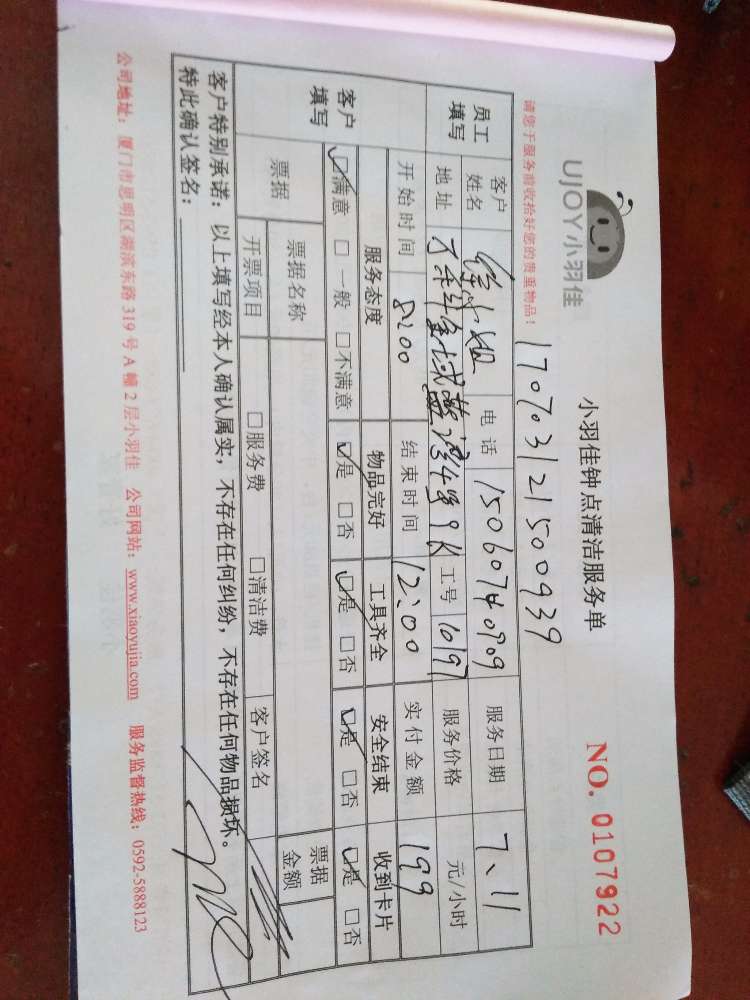 UJOY小羽佳
小羽佳钟点清洁服务单
NO. 0107922
请您于服务前收拾好您的贵重物品！
17070312150093​9
员工填写 客户姓名 小姐 电话 15060740909 服务日期 7、11
地址 4号9 工号 10197 服务价格 元/小时
开始时间 8:00 结束时间 12:00 实付金额 199
客户填写 服务态度 物品完好 工具齐全 安全结束 收到卡片
☑满意 □一般 □不满意 ☑是 □否 ☑是 □否 ☑是 □否 ☑是 □否
票据 票据名称 票据金额
开票项目 □服务费 □清洁费 客户签名
客户特别承诺：以上填写经本人确认属实，不存在任何纠纷，不存在任何物品损坏。
特此确认签名：
公司地址：厦门市思明区湖滨东路319号A幢2层小羽佳 公司网站：www.xiaoyujia.com 服务监督热线：0592-5888123